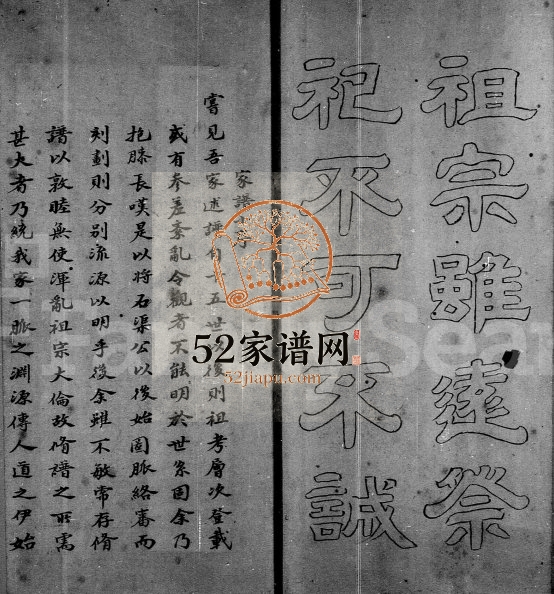 祖宗雖遠祭
祀不可不誠
家譜序
嘗見吾家述譜自十五世以後則祖考層次登載
或有参差紊亂令觀者不能明於世系因余乃
抱膝長嘆是以将石渠公以後始圖脈絡審而
刻劃則分别流源以明乎後余雖不敏常存脩
譜以敦睦無使渾亂祖宗大倫故脩譜之所需
甚大者乃統我家一脈之淵源傳人道之伊始
52家谱网
52jiapu.com